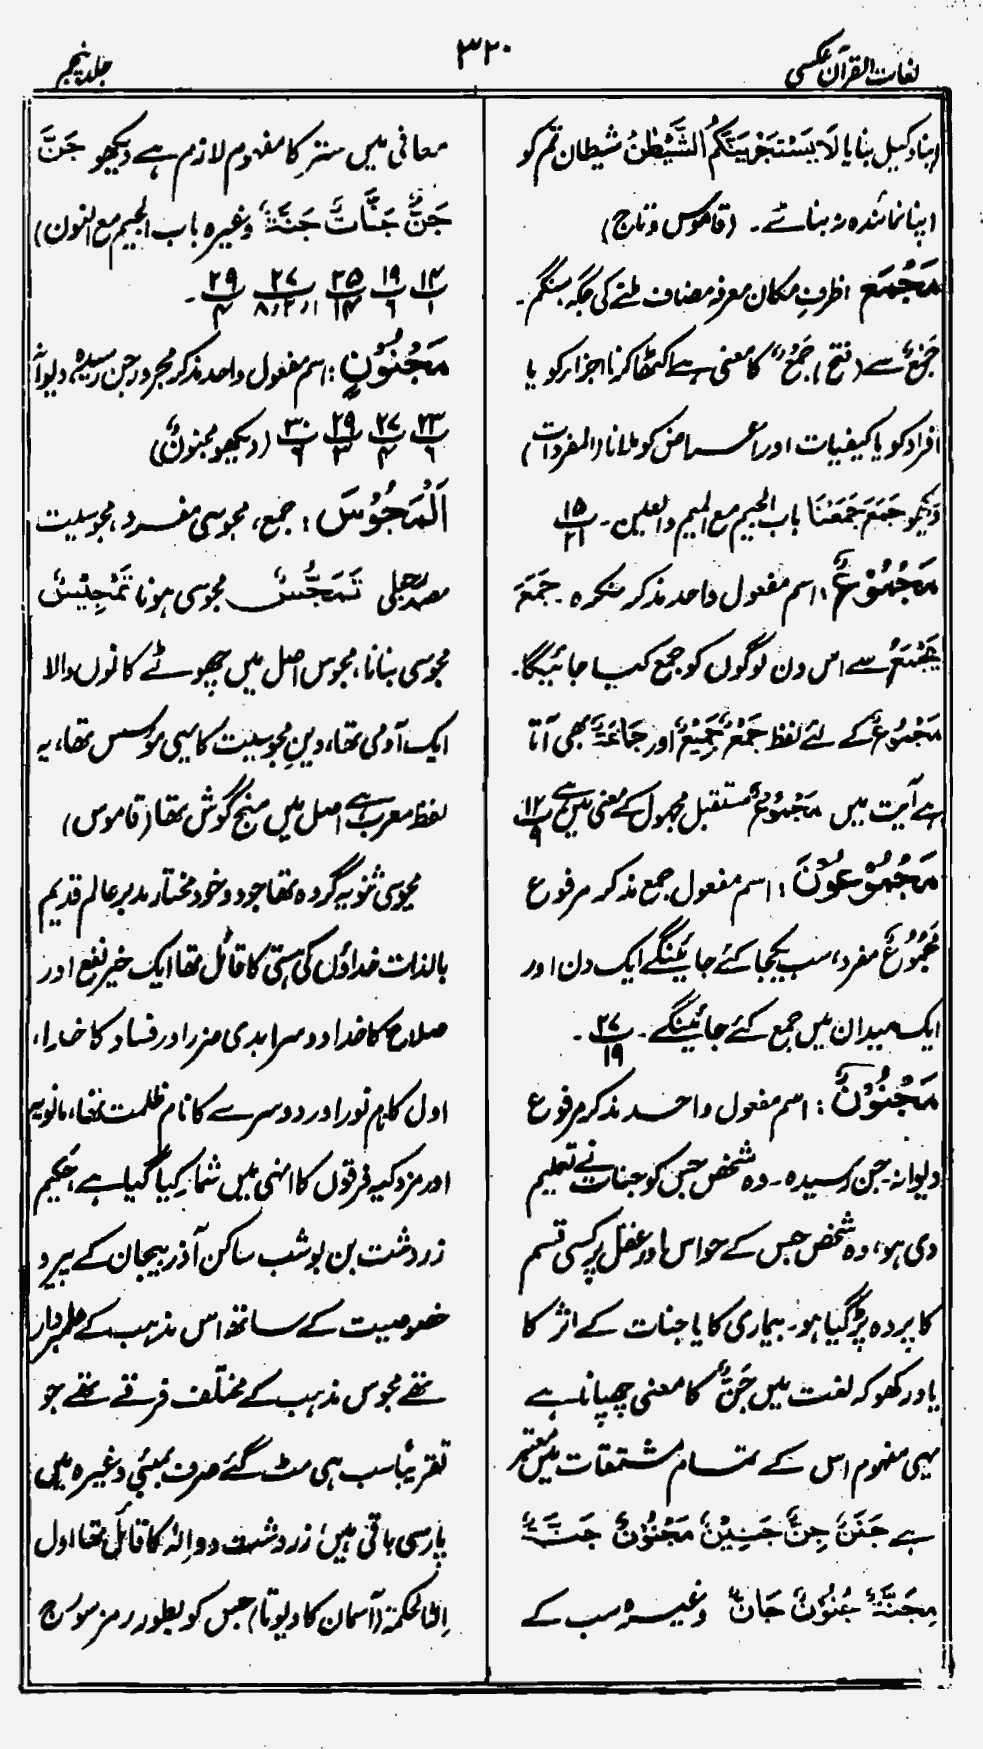 لغات القرآن عکسی
۳۲۰
جلد پنجم
اپنا وکیل بنایا لَا یَسْتَجْرِیَنَّکُمُ الشَّیْطٰنُ شیطان تم کو
اپنا نمائندہ نہ بنائے۔ (قاموس و تاج)
مَجْمَع ظرفِ مکان معرفہ مضاف ملنے کی جگہ سنگم۔
جَمْعٌ سے (فتح) جَمْعٌ کا معنی ہے اکٹھا کرنا اجزار کو یا
افراد کو یا کیفیات اور اعراض کو ملانا (المفردات)
دیکھو جَمَعَ جَمَعْنَا باب الجیم مع المیم والعین۔ ۱۵/۲۱
مَجْمُوْعٌ: اسم مفعول واحد مذکر منکرہ۔ جَمَعَ
یَجْمَعُ سے اس دن لوگوں کو جمع کیا جائیگا۔
مَجْمُوْعٌ کے لئے لفظ جَمْعٌ جَمِیْعٌ اور جَمَاعَۃٌ بھی آتا
ہے آیت میں مَجْمُوْعٌ مستقبل مجہول کے معنی میں ہے ۱۲/۹
مَجْمُوْعُوْنَ: اسم مفعول جمع مذکر مرفوع
مَجْمُوْعٌ مفرد، سب یکجا کئے جائینگے ایک دن اور
ایک میدان میں جمع کئے جائینگے۔ ۲۷/۱۹۔
مَجْنُوْنٌ: اسم مفعول واحد مذکر مرفوع
دیوانہ۔ جن رسیدہ۔ وہ شخص جس کو جنات نے تعلیم
دی ہو، وہ شخص جس کے حواس اور عقل پر کسی قسم
کا پردہ پڑ گیا ہو۔ بیماری کا یا جنات کے اثر کا
یاد رکھو کہ لغت میں جَنٌّ کا معنی چھپانا ہے
یہی مفہوم اس کے تمام مشتقات میں معتبر
ہے جَنَنٌ جِنٌّ جَنِیْنٌ مَجْنُوْنٌ جَنَّۃٌ
مِجَنَّۃٌ جُنُوْنٌ جَانٌّ وغیرہ سب کے
معانی میں ستر کا مفہوم لازم ہے دیکھو جَنَّ
جَنٌّ جَنَّاتٌ جَنَّۃٌ وغیرہ باب الجیم مع النون)
۱۴/۱ ۱۹/۶ ۲۵/۱۴ ۲۷/۸،۲،۱ ۲۹/۴۔
مَجْنُوْنٍ: اسم مفعول واحد مذکر مجرور جن رسیدہ، دیوانہ
۲۳/۶ ۲۷/۴ ۲۹/۳ ۳۰/۶ (دیکھو مجنونٌ)
اَلْمَجُوْسَ: جمع، مجوسی مفرد، مجوسیت
مصدر جعلی تَمَجُّسٌ مجوسی ہونا تَمْجِیْسٌ
مجوسی بنانا، مجوس اصل میں چھوٹے کانوں والا
ایک آدمی تھا، دینِ مجوسیت کا یہی موسس تھا، یہ
لفظ معرب ہے اصل میں منج گوش تھا (قاموس)
مجوسی ثنویہ گروہ تھا جو دو خود مختار مدبر عالم قدیم
بالذات خداؤں کی ہستی کا قائل تھا ایک خیر نفع اور
صلاح کا خدا دوسرا بدی ضرر اور فساد کا خدا،
اول کا نام نور اور دوسرے کا نام ظلمت تھا، مانویہ
اور مزدکیہ فرقوں کا انہی میں شمار کیا گیا ہے، حکیم
زردشت بن بوشب ساکن آذر بیجان کے پیرو
خصوصیت کے ساتھ اس مذہب کے علمبردار
تھے مجوس مذہب کے مختلف فرقے تھے جو
تقریباً سب ہی مٹ گئے صرف بمبئی وغیرہ میں
پارسی باقی ہیں، زردشت دو الٰہ کا قائل تھا اول
الٰہ الحکمۃ (آسمان کا دیوتا) جس کو بطور رمز سورج